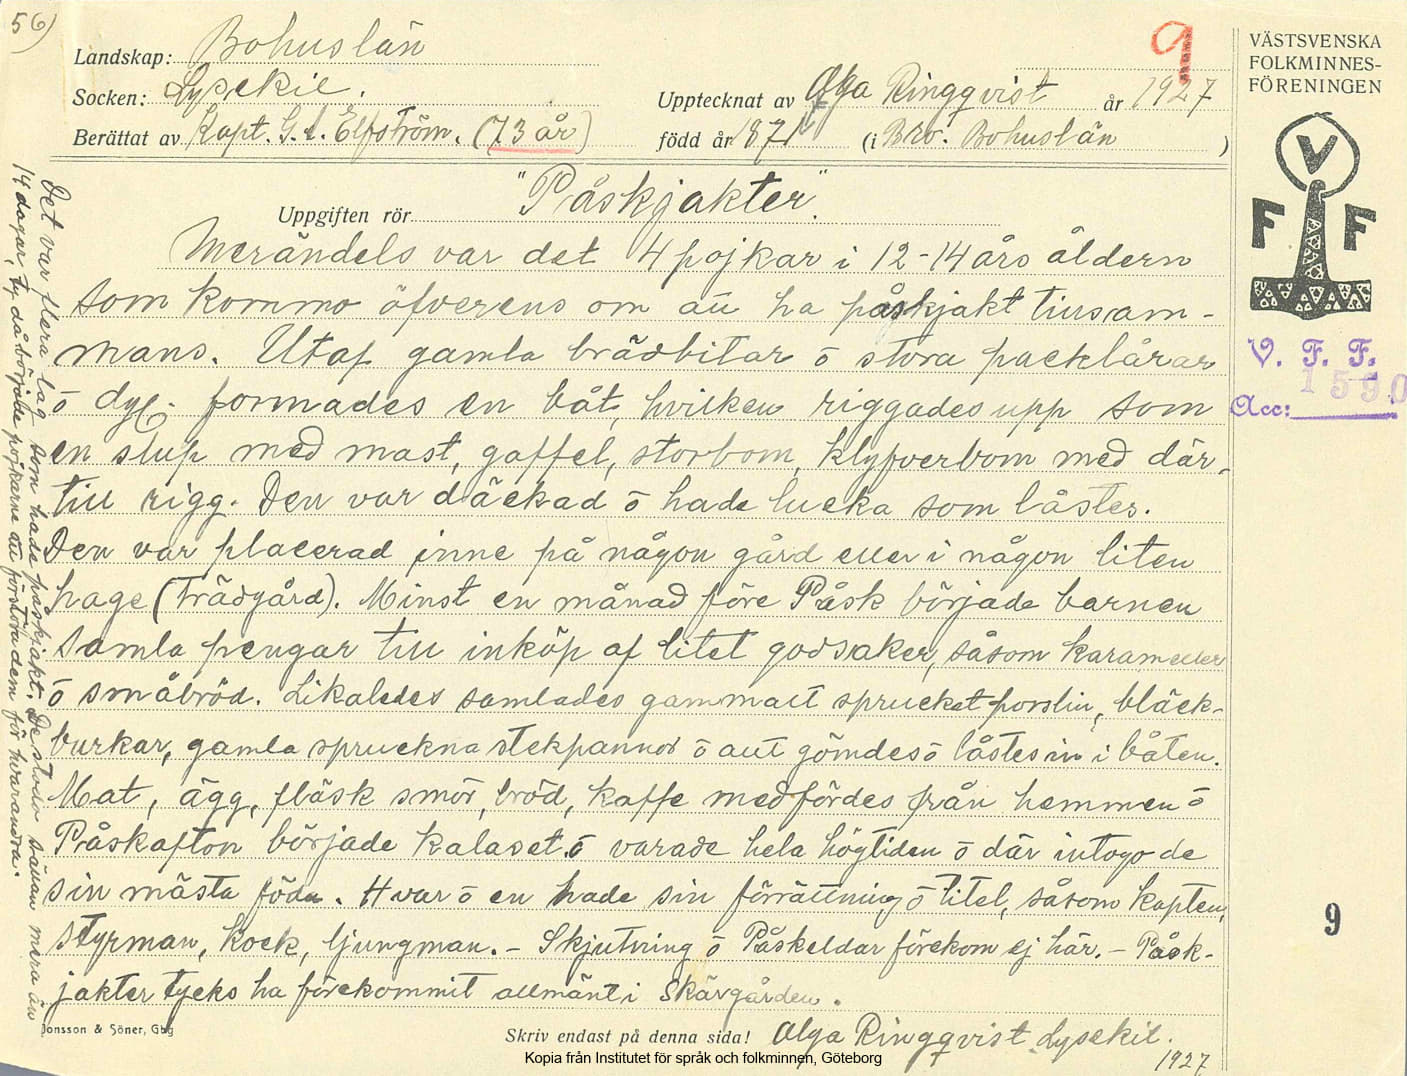 56)
Landskap: Bohuslän
Socken: Lysekil.
Berättat av Kapt. G. A. Elfström. (73 år)
Upptecknat av Olga Ringqvist år 1927
född år 1871 (i Bro. Bohuslän )
9
VÄSTSVENSKA
FOLKMINNES-
FÖRENINGEN
V
F F
V. F. F.
1590
Acc:
9
Uppgiften rör "Påskjakter".
Merändels var det 4 pojkar i 12-14 års åldern
som kommo öfverens om att ha påskjakt tillsam-
mans. Utaf gamla brädbitar o stora packlårar
o dyl. formades en båt, hvilken riggades upp som
en slup med mast, gaffel, storbom, klyfverbom med där-
till rigg. Den var däckad o hade lucka som låstes.
Den var placerad inne på någon gård eller i någon liten
hage (trädgård). Minst en månad före Påsk började barnen
samla pengar till inköp af litet godsaker, såsom karameller
o småbröd. Likaledes samlades gammalt sprucket porslin, bläck-
burkar, gamla spruckna stekpannor o allt gömdes o låstes in i båten.
Mat, ägg, fläsk smör, bröd, kaffe medfördes från hemmen o
Påskafton började kalaset o varade hela högtiden o där intogo de
sin mästa föda. Hvar o en hade sin förrättning o titel, såsom kapten,
styrman, kock, ljungman. - Skjutning o Påskeldar förekom ej här. - Påsk-
jakter tycks ha förekommit allmänt i Skärgården.
Det var flera lag som hade påskjakt. De stodo sällan mera än
14 dagar, ty då började pojkarne att förstöra dem för hvarandra.
Jonsson & Söner, Gbg
Skriv endast på denna sida! Olga Ringqvist Lysekil.
1927
Kopia från Institutet för språk och folkminnen, Göteborg